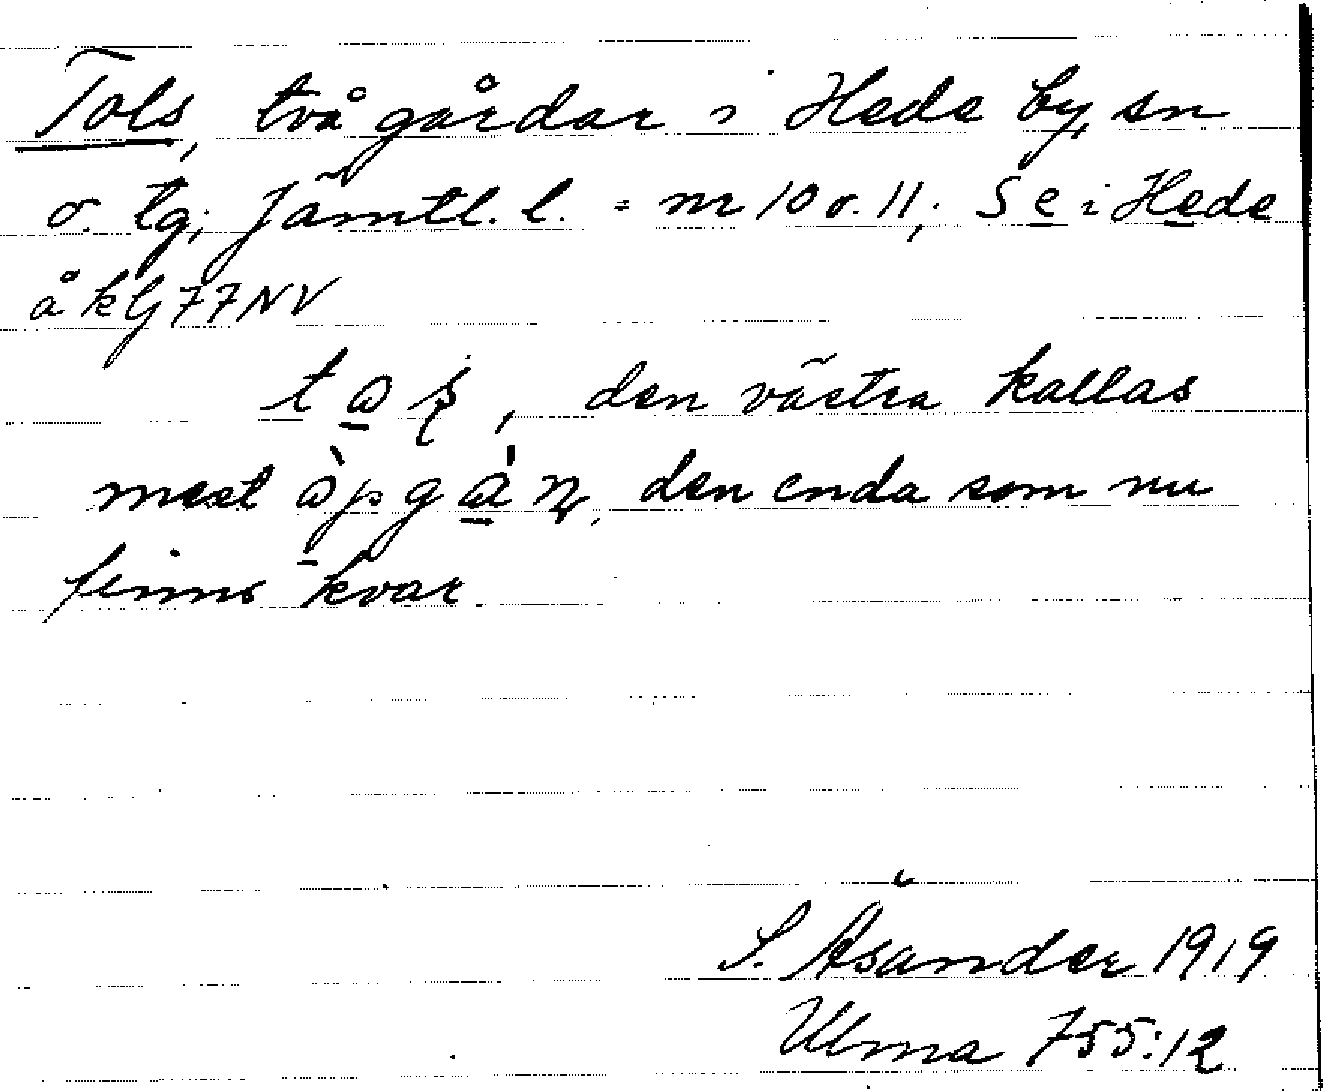 Tols, två gårdar i Hede by, sn
o. tg; Jämtl. l. = nr 10 o. 11; S e i Hede
å kbl 77 NV
den västra kallas
mest den enda som nu
finns kvar
S. Åsander 1919
Ulma 755:12